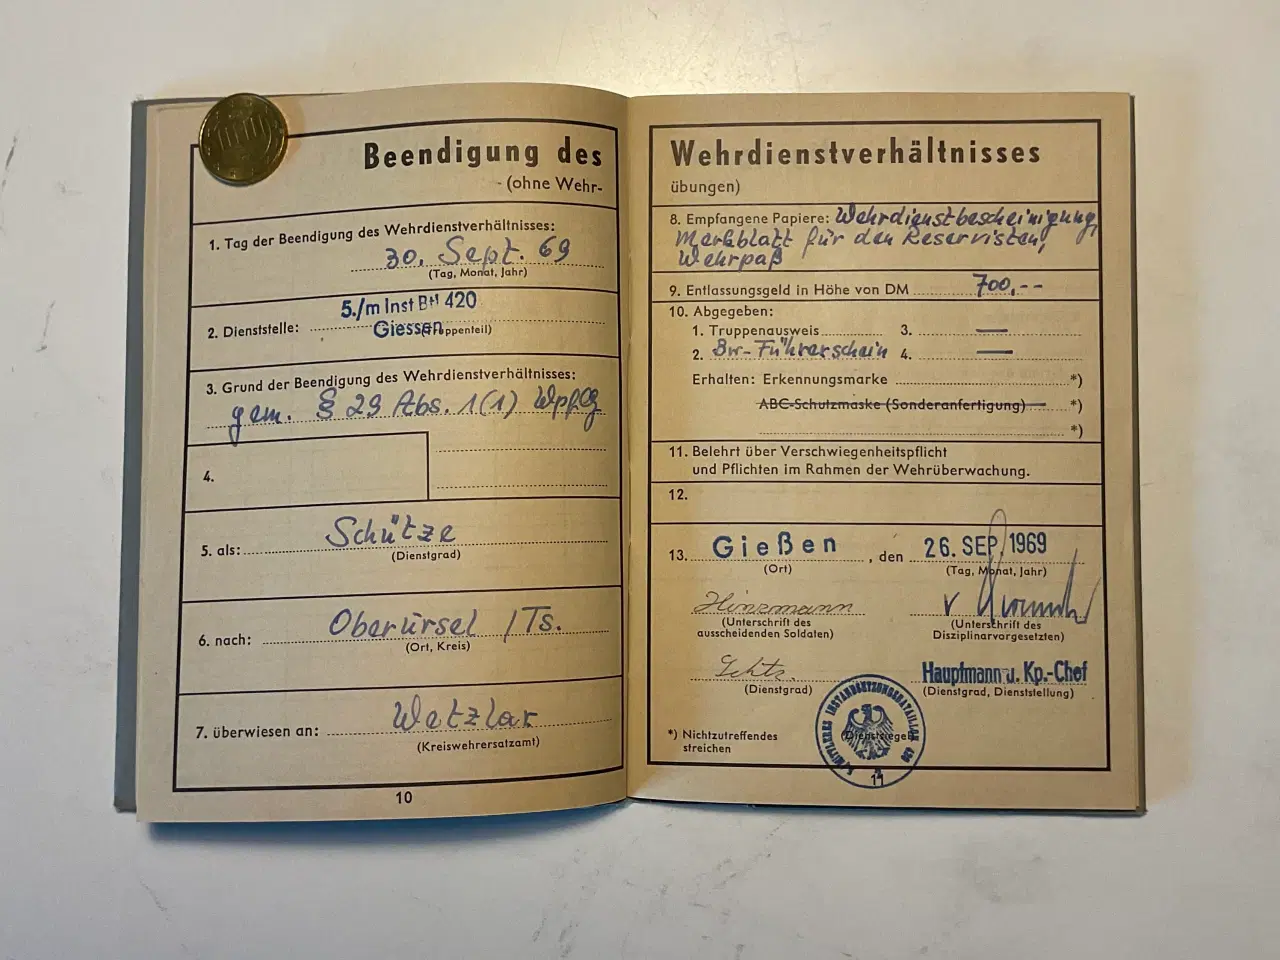 Beendigung des
- (ohne Wehr-
1. Tag der Beendigung des Wehrdienstverhältnisses:
30. Sept. 69
(Tag, Monat, Jahr)
5./m Inst Btl 420
2. Dienststelle: Giessen (Truppenteil)
3. Grund der Beendigung des Wehrdienstverhältnisses:
gem. § 29 Abs. 1(1) Wpflg
4.
5. als: Schütze
(Dienstgrad)
6. nach: Oberursel /Ts.
(Ort, Kreis)
7. überwiesen an: Wetzlar
(Kreiswehrersatzamt)
10
Wehrdienstverhältnisses
übungen)
8. Empfangene Papiere: Wehrdienstbescheinigung,
Merkblatt für den Reservisten,
Wehrpaß
9. Entlassungsgeld in Höhe von DM 700,--
10. Abgegeben:
1. Truppenausweis 3. —
2. Bw-Führerschein 4. —
Erhalten: Erkennungsmarke *)
ABC-Schutzmaske (Sonderanfertigung) *)
*)
11. Belehrt über Verschwiegenheitspflicht
und Pflichten im Rahmen der Wehrüberwachung.
12.
13. Gießen, den 26. SEP. 1969
(Ort) (Tag, Monat, Jahr)
Hinzmann
(Unterschrift des
ausscheidenden Soldaten)
(Unterschrift des
Disziplinarvorgesetzten)
Schtz.
(Dienstgrad)
Hauptmann u. Kp.-Chef
(Dienstgrad, Dienststellung)
*) Nichtzutreffendes
streichen
(Dienstsiegel)
5./MITTLERES INSTANDSETZUNGSBATAILLON 420
11